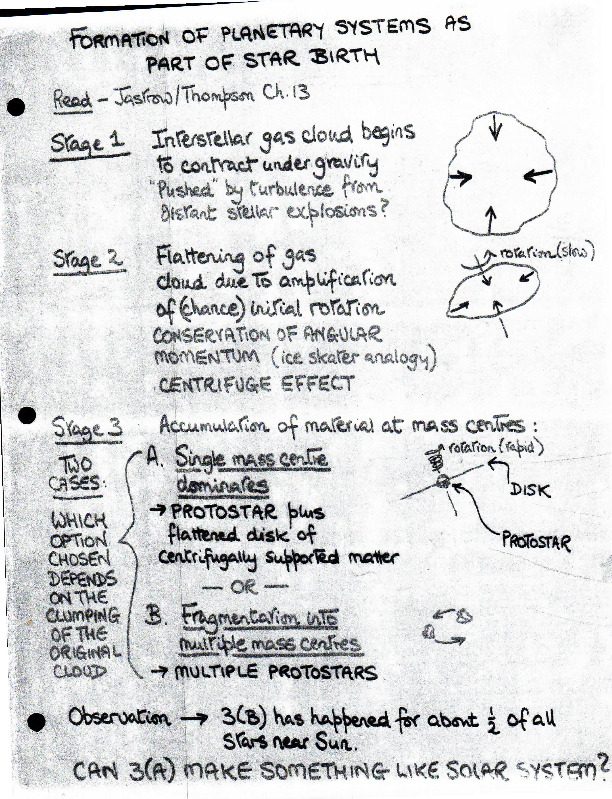 FORMATION OF PLANETARY SYSTEMS AS
PART OF STAR BIRTH
Read - Jastrow/Thompson Ch.13
Stage 1 Interstellar gas cloud begins
to contract under gravity
"Pushed" by turbulence from
distant stellar explosions?
Stage 2 Flattening of gas
cloud due to amplification
of (chance) initial rotation
CONSERVATION OF ANGULAR
MOMENTUM (ice skater analogy)
CENTRIFUGE EFFECT
rotation (slow)
Stage 3 Accumulation of material at mass centres :
TWO
CASES:
WHICH
OPTION
CHOSEN
DEPENDS
ON THE
CLUMPING
OF THE
ORIGINAL
CLOUD
A. Single mass centre
dominates
→ PROTOSTAR plus
flattened disk of
centrifugally supported matter
rotation (rapid)
DISK
PROTOSTAR
— OR —
B. Fragmentation into
multiple mass centres
→ MULTIPLE PROTOSTARS
Observation → 3(B) has happened for about 1/2 of all
stars near Sun.
CAN 3(A) MAKE SOMETHING LIKE SOLAR SYSTEM?